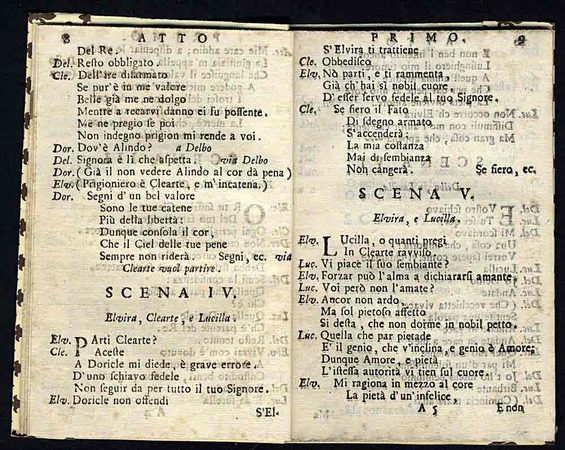 8 ATTO
Del Re.
Del. Resto obbligato.
Cle. Dell'ire disarmato
Se pur'è in me valore
Belle già me ne dolgo
Mentre a recarvi danno ei fu possente.
Me ne pregio se poi
Non indegno prigion mi rende a voi.
Dor. Dov'è Alindo? a Delbo
Del. Signora è lì che aspetta. via Delbo
Dor. (Già il non vedere Alindo al cor dà pena)
Elv. (Prigioniero è Clearte, e m'incatena.)
Dor. Segni d'un bel valore
Sono le tue catene
Più della libertà:
Dunque consola il cor,
Che il Ciel delle tue pene
Sempre non riderà. Segni, ec. via
Clearte vuol partire.
SCENA IV.
Elvira, Clearte, e Lucilla.
Elv. PArti Clearte?
Cle. Aceste
A Doricle mi diede, è grave errore,
D'uno schiavo fedele
Non seguir da per tutto il tuo Signore.
Elv. Doricle non offendi
S'El-
PRIMO. 9
S'Elvira ti trattiene
Cle. Obbedisco
Elv. Nò parti, e ti rammenta
Già ch'hai sì nobil cuore,
D'esser servo fedele al tuo Signore.
Cle. Se fiero il Fato
Di sdegno armato
S'accenderà:
La mia costanza
Mai di sembianza
Non cangerà. Se fiero, ec.
SCENA V.
Elvira, e Lucilla.
Elv. LUcilla, o quanti pregi
In Clearte ravviso.
Luc. Vi piace il suo sembiante?
Elv. Forzar può l'alma a dichiararsi amante.
Luc. Voi però non l'amate?
Elv. Ancor non ardo,
Ma sol pietoso affetto
Si desta, che non dorme in nobil petto.
Luc. Quella che par pietade
E' il genio, che v'inclina, e genio è Amore;
Dunque Amore, e pietà
L'istessa autorità vi tien sul cuore.
Elv. Mi ragiona in mezzo al core
La pietà d'un'infelice,
A 5 E non